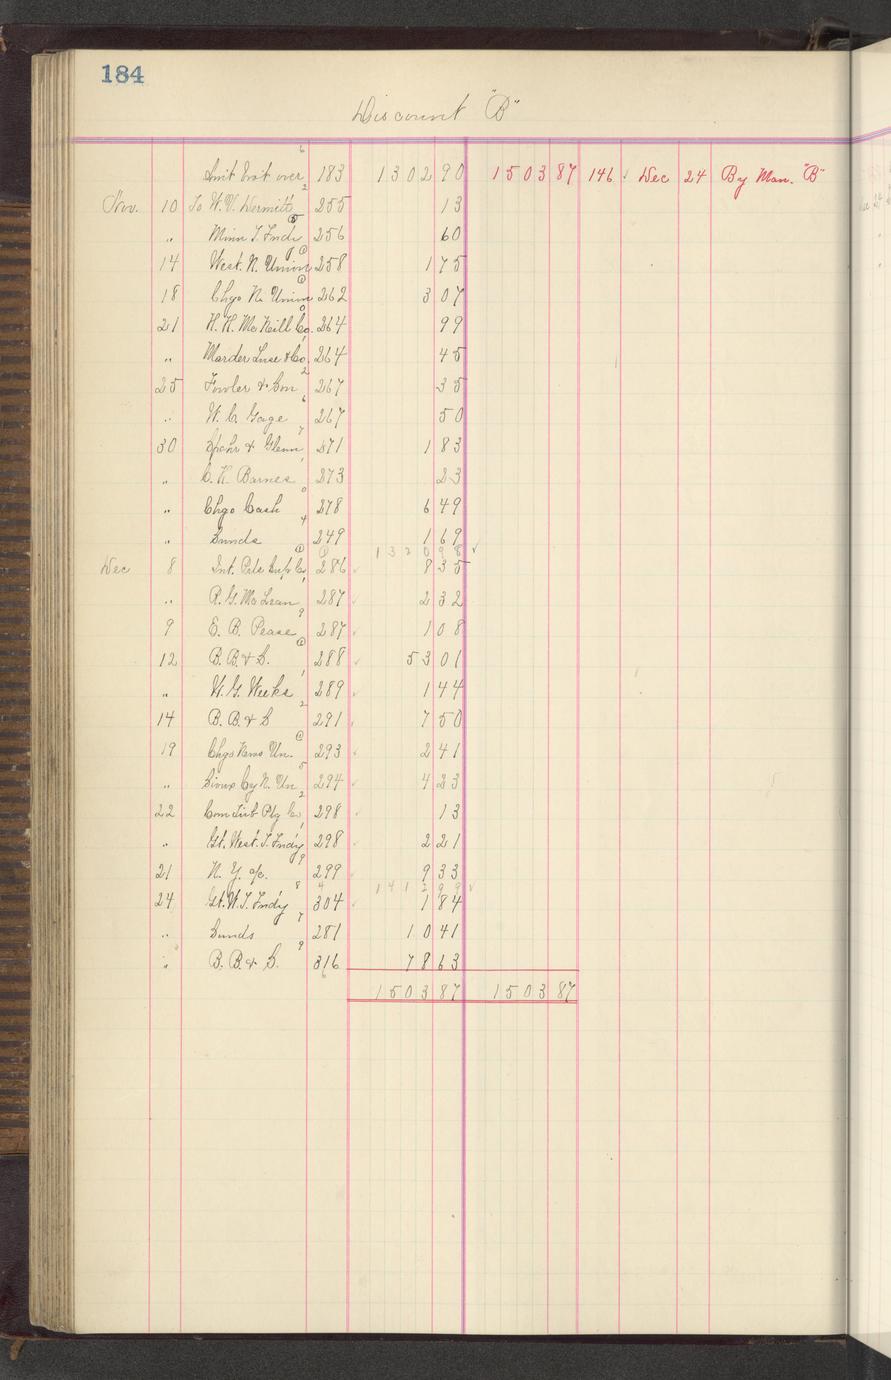 184
Discount "B"
Amt brot over 183 1302 90 1503 87 146 Dec 24 By Man. "B"
Nov. 10 To W. V. Dermitt 255 13
" Minn T. Fndy 256 60
14 West. N. Union 258 1 75
18 Chgo N. Union 262 3 07
21 H. H. McNeill Co. 264 99
" Marder Luse & Co. 264 45
25 Fowler & Son 267 35
" W. C. Gage 267 50
30 Spahr & Glenn 271 1 83
" C. H. Barnes 273 23
" Chgo Cash 278 6 49
" Sunds 249 1 69
1320 98
Dec 8 Int. Ptrs Sup Co 286 8 35
" R. G. McLean 287 2 32
9 E. B. Pease 287 1 08
12 B. B. & S. 288 53 01
" W. G. Weeks 289 1 44
14 B. B. & S 291 7 50
19 Chgo News Un. 293 2 41
" Sioux Cy N. Un 294 4 23
22 Com Ptg Co 298 13
" Gt. West. T. Fndy 298 2 21
21 N. Y. o/c. 299 9 33
1412 99
24 Gt. W. T. Fndy 304 1 84
" Sunds 281 10 41
" B. B. & S. 316 78 63
1503 87 1503 87